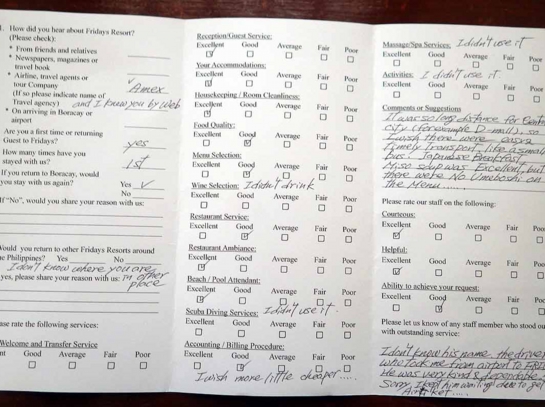 1. How did you hear about Fridays Resort?
(Please check):
* From friends and relatives
* Newspapers, magazines or
travel book
* Airline, travel agents or
tour Company
(If so please indicate name of
Travel agency)
Amex
and I know you by web
* On arriving in Boracay or
airport
Are you a first time or returning
Guest to Fridays?
yes
How many times have you
stayed with us?
1st
If you return to Boracay, would
you stay with us again? Yes
No
If "No", would you share your reason with us:
Would you return to other Fridays Resorts around
the Philippines? Yes No
I don't know where you are
yes, please share your reason with us: in other
place
ase rate the following services:
Welcome and Transfer Service
nt Good Average Fair Poor
Reception/Guest Service:
Excellent Good Average Fair Poor
Your Accommodations:
Excellent Good Average Fair Poor
Housekeeping / Room Cleanliness:
Excellent Good Average Fair Poor
Food Quality:
Excellent Good Average Fair Poor
Menu Selection:
Excellent Good Average Fair Poor
Wine Selection: I didn't drink
Excellent Good Average Fair Poor
Restaurant Service:
Excellent Good Average Fair Poor
Restaurant Ambiance:
Excellent Good Average Fair Poor
Beach / Pool Attendant:
Excellent Good Average Fair Poor
Scuba Diving Services: I didn't use it.
Excellent Good Average Fair Poor
Accounting / Billing Procedure:
Excellent Good Average Fair Poor
I wish more little cheaper.....
Massage/Spa Services: I didn't use it
Excellent Good Average Fair Poor
Activities: I didn't use it.
Excellent Good Average Fair Poor
Comments or Suggestions
It was so long distance for
city (for example D-mall), so
I wish there were
timely Transport, like a small
bus. Japanese Breakfast
Miso soup was Excellent, but
there were No Umeboshi on
the Menu......
Please rate our staff on the following:
Courteous:
Excellent Good Average Fair Poo
Helpful:
Excellent Good Average Fair Poo
Ability to achieve your request:
Excellent Good Average Fair Po
Please let us know of any staff member who stood ou
with outstanding service:
I don't know his name, the driver
who took me from airport to
He was very kind & dependable
Sorry I kept him waiting! due to get